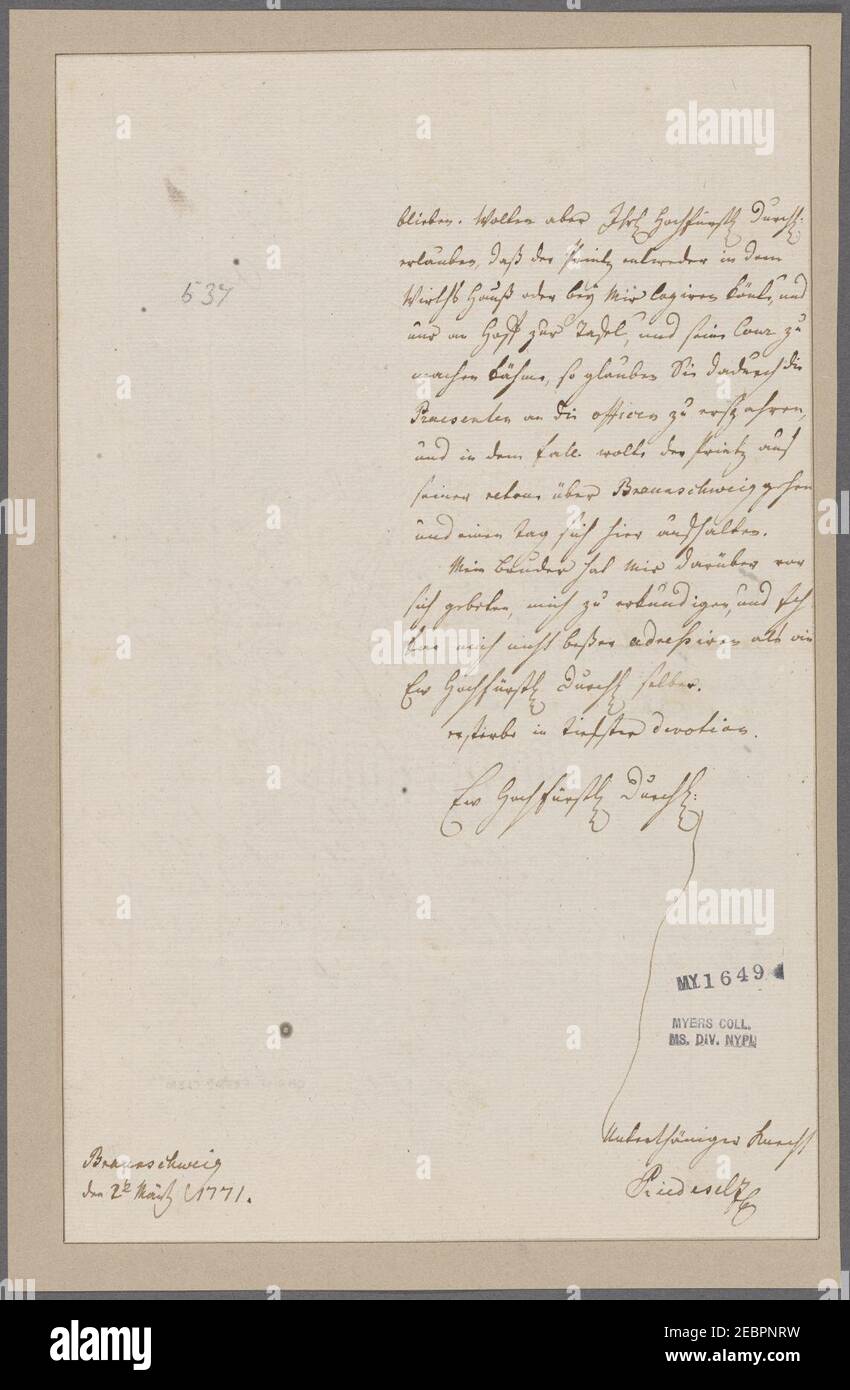 alamy
537
blieben. Wollen aber Ihro Hochfürstl Durchl:
erlauben, daß der Printz entweder in dem
Wirths Hauß oder bey mir logiren könte, und
nur an Hoff zur Tafel, und seine Cour zu
machen kähme, so glauben Sie dadurch die
Praesenten an die officen zu erspahren,
und in dem fall wolte der Printz auf
seiner retour über Braunschweig gehen
und einen tag sich hier aufhalten.
Mein Bruder hat mir darüber vor
sich gebeten, mich zu erkundigen, und Ich
mich nicht beßer adressiren als an
Ew Hochfürstl Durchl selber.
ersterbe in tiefster devotion.
Ew Hochfürstl Durchl:
MY.1649
MYERS COLL.
MS. DIV. NYPL
Unterthäniger Knecht
Riedesel
Braunschweig
den 2t Märtz 1771.
alamy
Image ID: 2EBPNRW
www.alamy.com